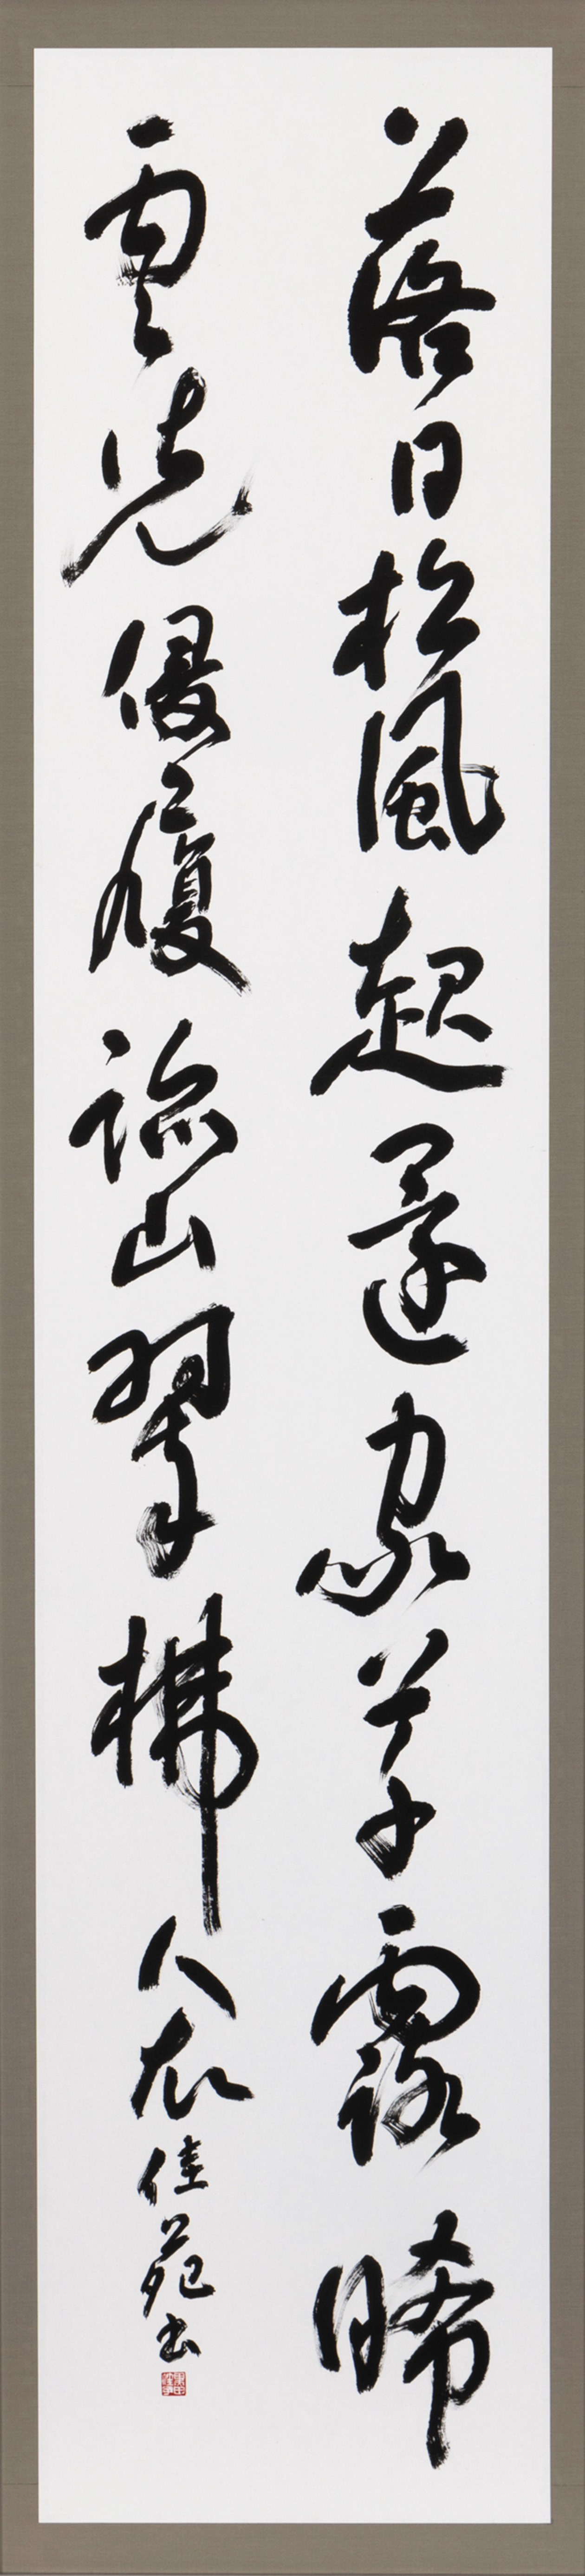 落日松風起還家草露晞
雲光侵履跡山翠拂人衣
佳苑書